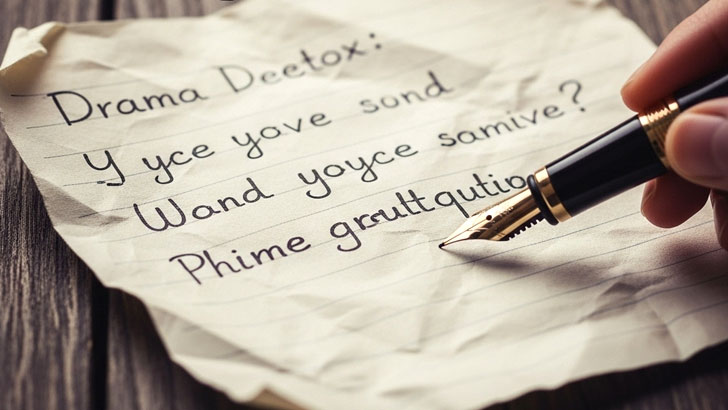 Drama Deetox:
Y yce yave sond
Wand yoyce samive?
Phime gruttqutio